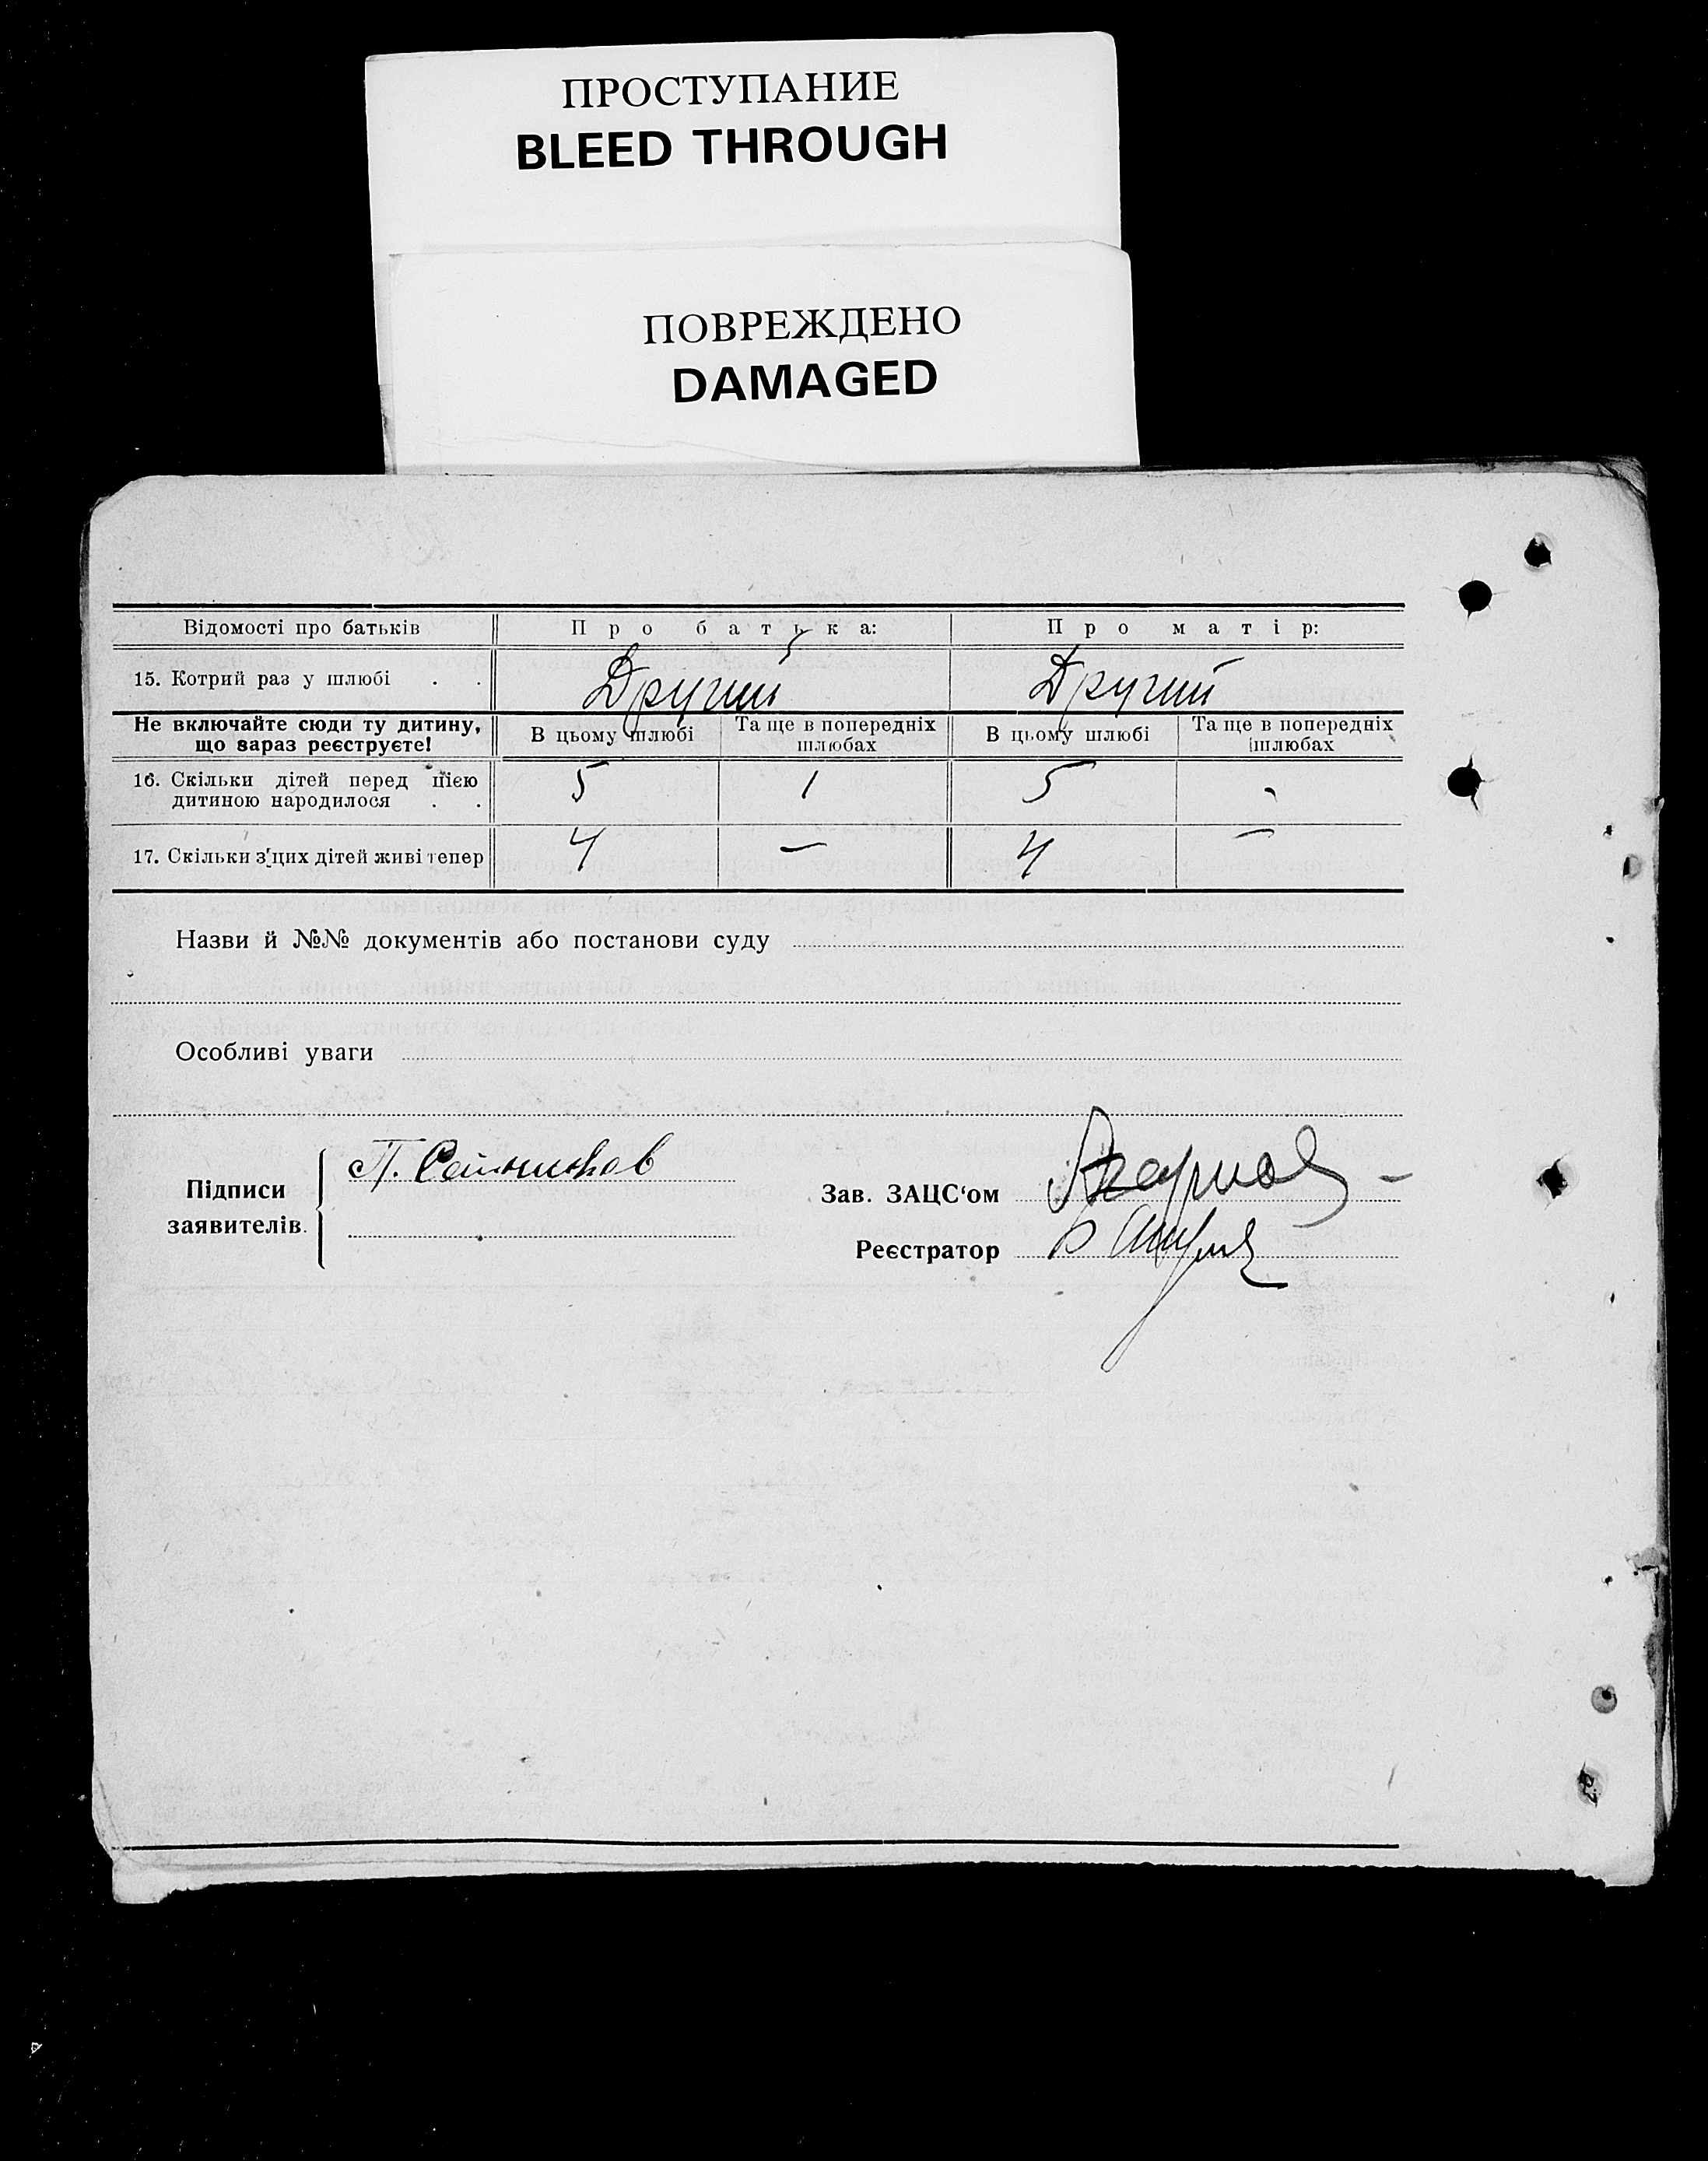 ПРОСТУПАНИЕ
BLEED THROUGH
ПОВРЕЖДЕНО
DAMAGED
Відомості про батьків Про батька: Про матір:
15. Котрий раз у шлюбі . . Другий Другий
Не включайте сюди ту дитину, що зараз реєструєте! В цьому шлюбі Та ще в попередніх шлюбах В цьому шлюбі Та ще в попередніх шлюбах
16. Скільки дітей перед цією дитиною народилося . . 5 1 5 -
17. Скільки з цих дітей живі тепер 4 — 4 —
Назви й №№ документів або постанови суду
Особливі уваги
Підписи заявителів. П.
Зав. ЗАЦС‘ом
Реєстратор